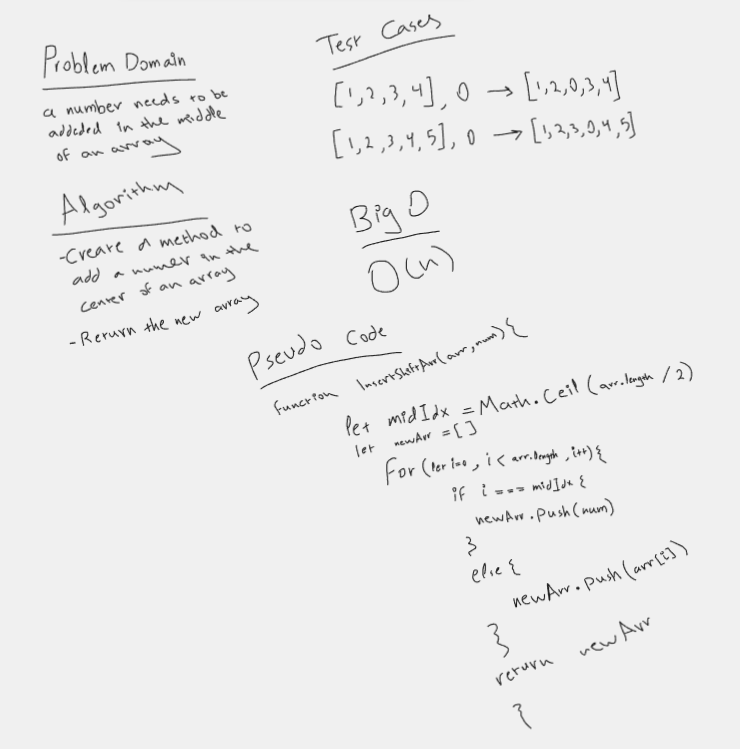 Problem Domain
a number needs to be
addeded in the middle
of an array
Algorithm
-Create a method to
add a numer in the
center of an array
-Return the new array
Test Cases
[1,2,3,4], 0 → [1,2,0,3,4]
[1,2,3,4,5], 0 → [1,2,3,0,4,5]
Big O
O(n)
Pseudo Code
function InsertShiftArr(arr,num){
let midIdx = Math.Ceil(arr.length / 2)
let newArr = []
For (let i=0, i < arr.length, i++){
if i === midIdx {
newArr.push(num)
}
else {
newArr.push(arr[i])
}
return newArr
{